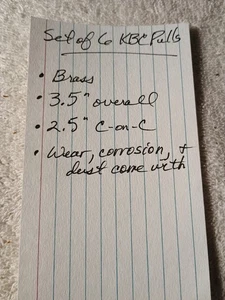 Set of 6 KBC Pulls
• Brass
• 3.5" overall
• 2.5" C-on-C
• Wear, corrosion, +
dust come with